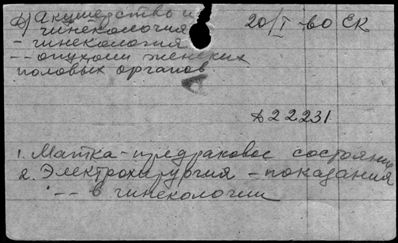 б) Акушерство и гинекология 20/I-60 ЕК
- гинекология
-- опухоли женских
половых органов
Д22231
1. Матка-предраковое состояние
2. Электрохирургия - показания
-- в гинекологии